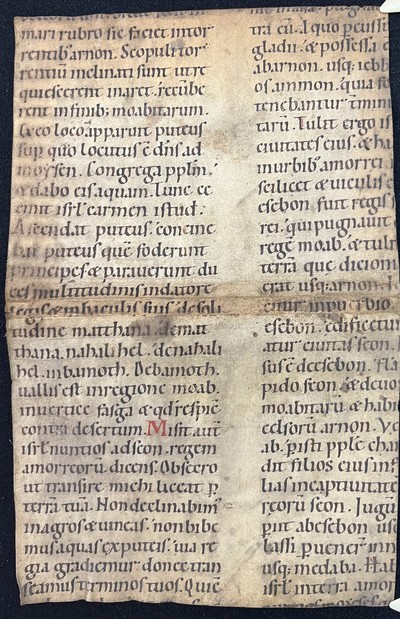 mari rubro sic faciet in tor
rentib' arnon. Scopuli tor
rentiū inclinati sunt ut re
quiescerent in aret. recūbe
rent in finib; moabitarum.
Ex eo loco apparuit puteus
sup quo locutus ē dn̄s ad
moysen. Congrega pplm̄.
& dabo eis aquam. Tunc ce
cinit isrl̄ carmen istud.
Ascendat puteus. concine
bat puteus quē foderunt
principes & parauerunt du
ces multitudinis in datore
legis & in baculis suis. de soli
tudine matthana. de mat
thana. nahalihel. de nahali
hel. in bamoth. De bamoth.
uallis est in regione moab.
in uertice fasga & qd respic̄
contra desertum. Misit aut̄
isrl̄ nuntios ad seon. regem
amorreorū dicens. Obsecro
ut transire michi liceat p
terrā tuā. Non declinabim'
in agros & uineas. non bibe
mus aquas ex puteis. uia re
gia gradiemur donec tran
seamus terminos tuos. Qui ē
tra eū. A quo pcuss
gladii. & possessa e
ab arnon. usq; iebb
os ammon. quia fo
tenebantur tmini
tarū. Tulit ergo is
ciuitates eius. & ha
in urbib' amorrei.
scilicet & uiculis e
esebon fuit regis
rei. qui pugnauit
regē moab. & tulit
terrā que dicion
erat usq; arnon.
citur in puerbio.
esebon. edificetur
atur ciuitas seon.
sus ē de esebon. fla
pido seon. & deuo
moabitarū & habi
celsorū arnon. Ve
ab. pisti pple cham
dit filios eius in f
lias in captiuitate
reorū seon. Iugū
piit ab esebon us
lassi puener in n
usq; medaba. Hab
isrl̄ in terra amor